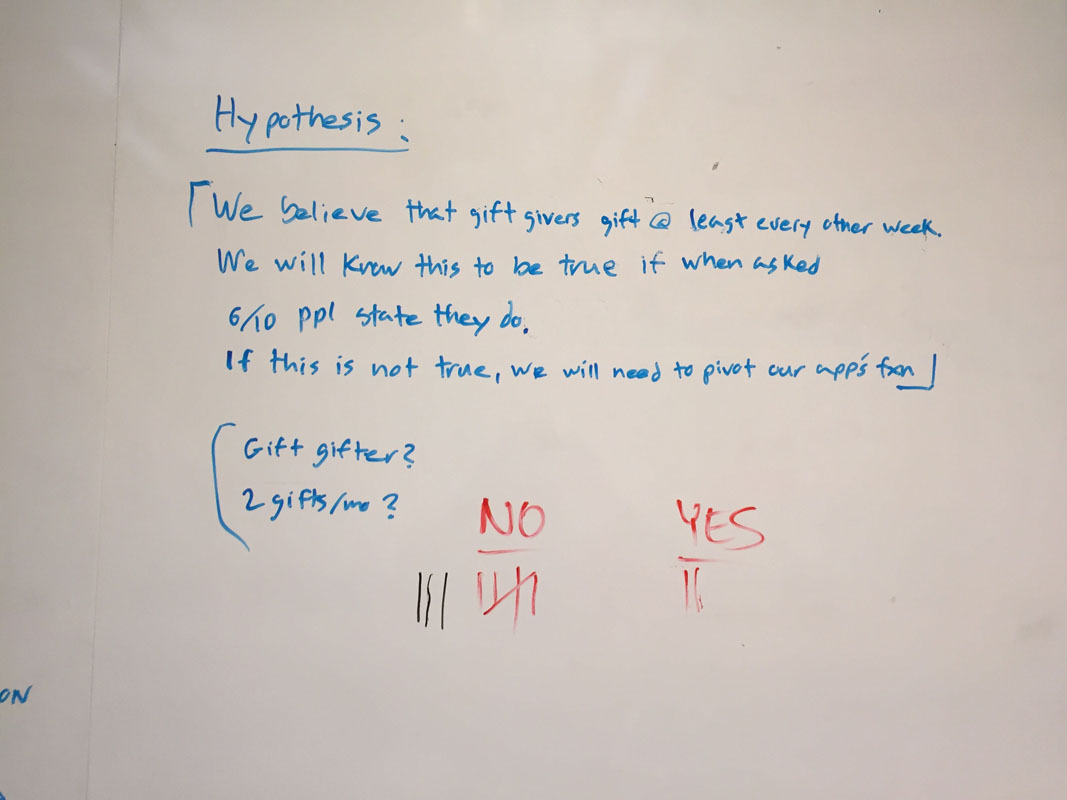 Hypothesis:
We believe that gift givers gift @ least every other week.
We will know this to be true if when asked
6/10 ppl state they do.
If this is not true, we will need to pivot our app's fxn
Gift gifter?
2 gifts/mo?
NO YES
ON